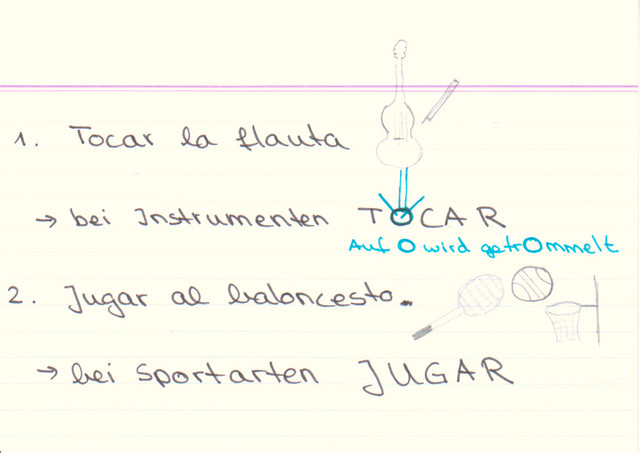 1. Tocar la flauta
→ bei Instrumenten TOCAR
Auf O wird getrOmmelt
2. Jugar al baloncesto.
→ bei Sportarten JUGAR